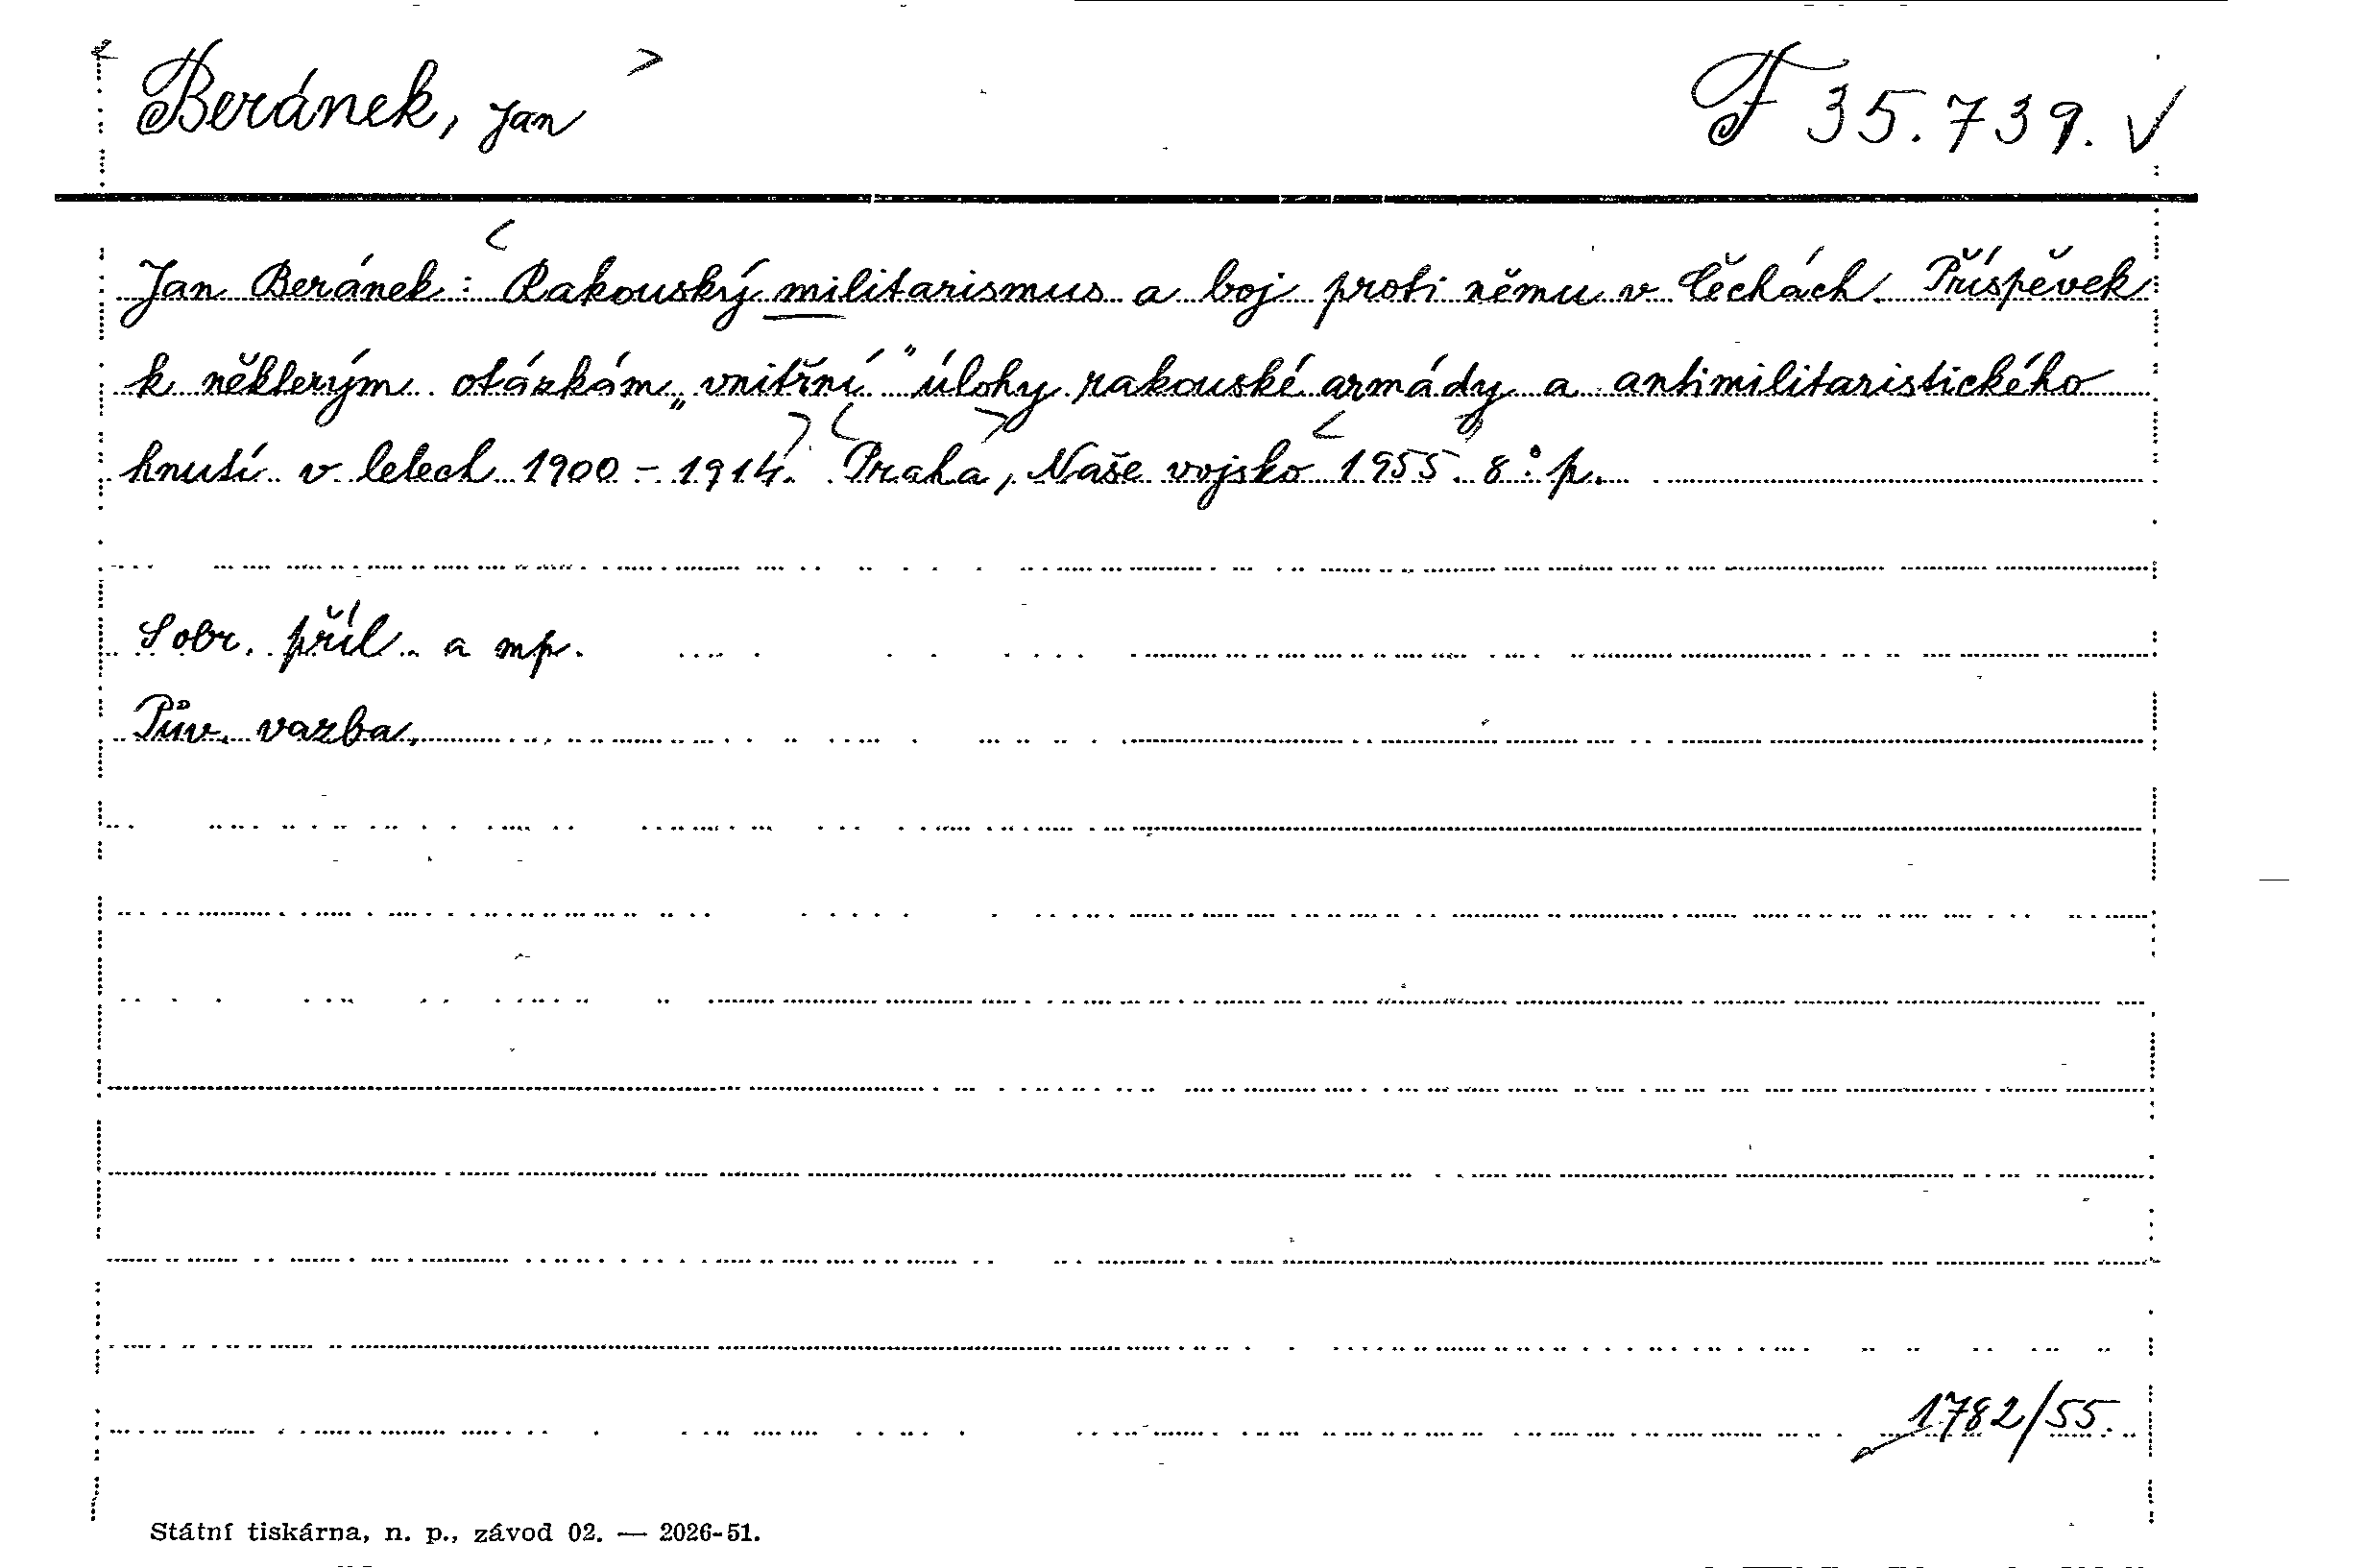 Beránek, Jan
F 35.739. √
Jan Beránek: Rakouský militarismus a boj proti němu v Čechách. Příspěvek
k některým otázkám „vnitřní" úlohy rakouské armády a antimilitaristického
hnutí v letech 1900 – 1914. Praha, Naše vojsko 1955. 8° p.
S obr. příl. a mp.
Pův. vazba.
1782/55.
Státní tiskárna, n. p., závod 02. — 2026-51.